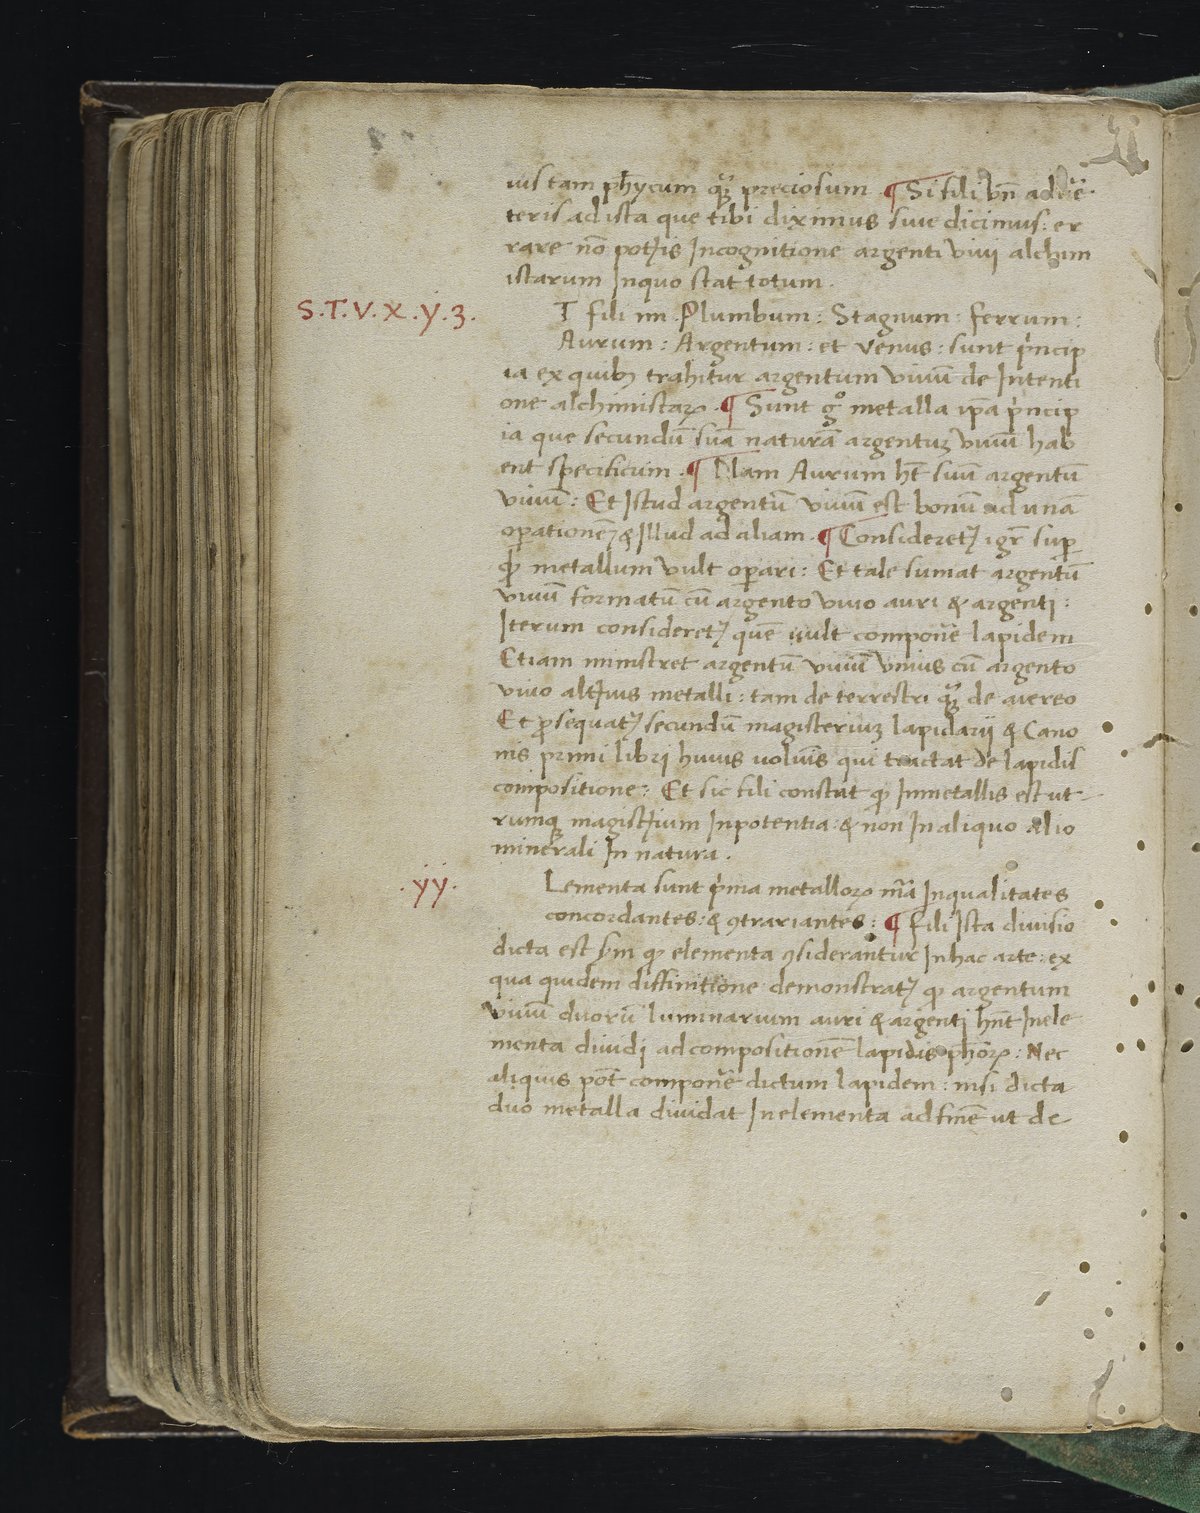 ius tam phycum quã preciosum . ¶ Si fili bñ aduẽ
teris ad ista que tibi diximus siue dicimus : er
rare nõ potis Incognitione argenti viui alchim
istarum Inquo stat totum .
S . T . V . X . ẏ . 3 .
T fili mi . Plumbum : Stagnum : ferrum :
Aurum : Argentum : et venus : sunt p'ncip
ia ex quibꝫ trahitur argentum viuũ de Intenti
one alchimistaꝝ . ¶ Sunt gº metalla ip̃a p'ncip
ia que secundũ suã naturã argentuꝫ viuũ hab
ent specificum . ¶ Nam Aurum ht̃ suũ argentũ
viuũ : Et Istud argentũ viuũ est bonũ ad unã
oꝑationẽ & Illud ad aliam . ¶ Consideret᷒ igr̃ suꝑ
ꝙ metallum vult oꝑari : Et tale sumat argentũ
viuũ formatũ cũ argento viuo auri & argenti :
Iterum consideret᷒ quẽ uult componẽ lapidem
Etiam ministret argentũ viuiũ vnius cũ argento
viuo altius metalli : tam de terrestri quã de aiereo
Et ꝓsequat᷒ secundũ magisteriuꝫ lapidarij & Cano
nis primi libri huius uolũis qui tractat de lapidis
compositione : Et sic fili constat ꝙ Inmetallis est ut-
rumqꝫ magistium Inpotentia : & non Inaliquo alio
minerali In natura .
. ẏẏ .
Lementa sunt p'ma metalloꝝ mã Inqualitates
concordantes : & ꝯtrariantes : ¶ fili Ista diuisio
dicta est sm̃ ꝙ elementa ꝯsiderantur Inhac arte : ex
qua quidem diffinitione demonstrat᷒ ꝙ argentum
viuũ duorũ luminarium auri & argenti hñt Inele
menta diuidi ad compositionẽ lapidis phõꝝ : Nec
aliquis põt componẽ dictum lapidem : nisi dicta
duo metalla diuidat Inelementa ad finẽ ut de